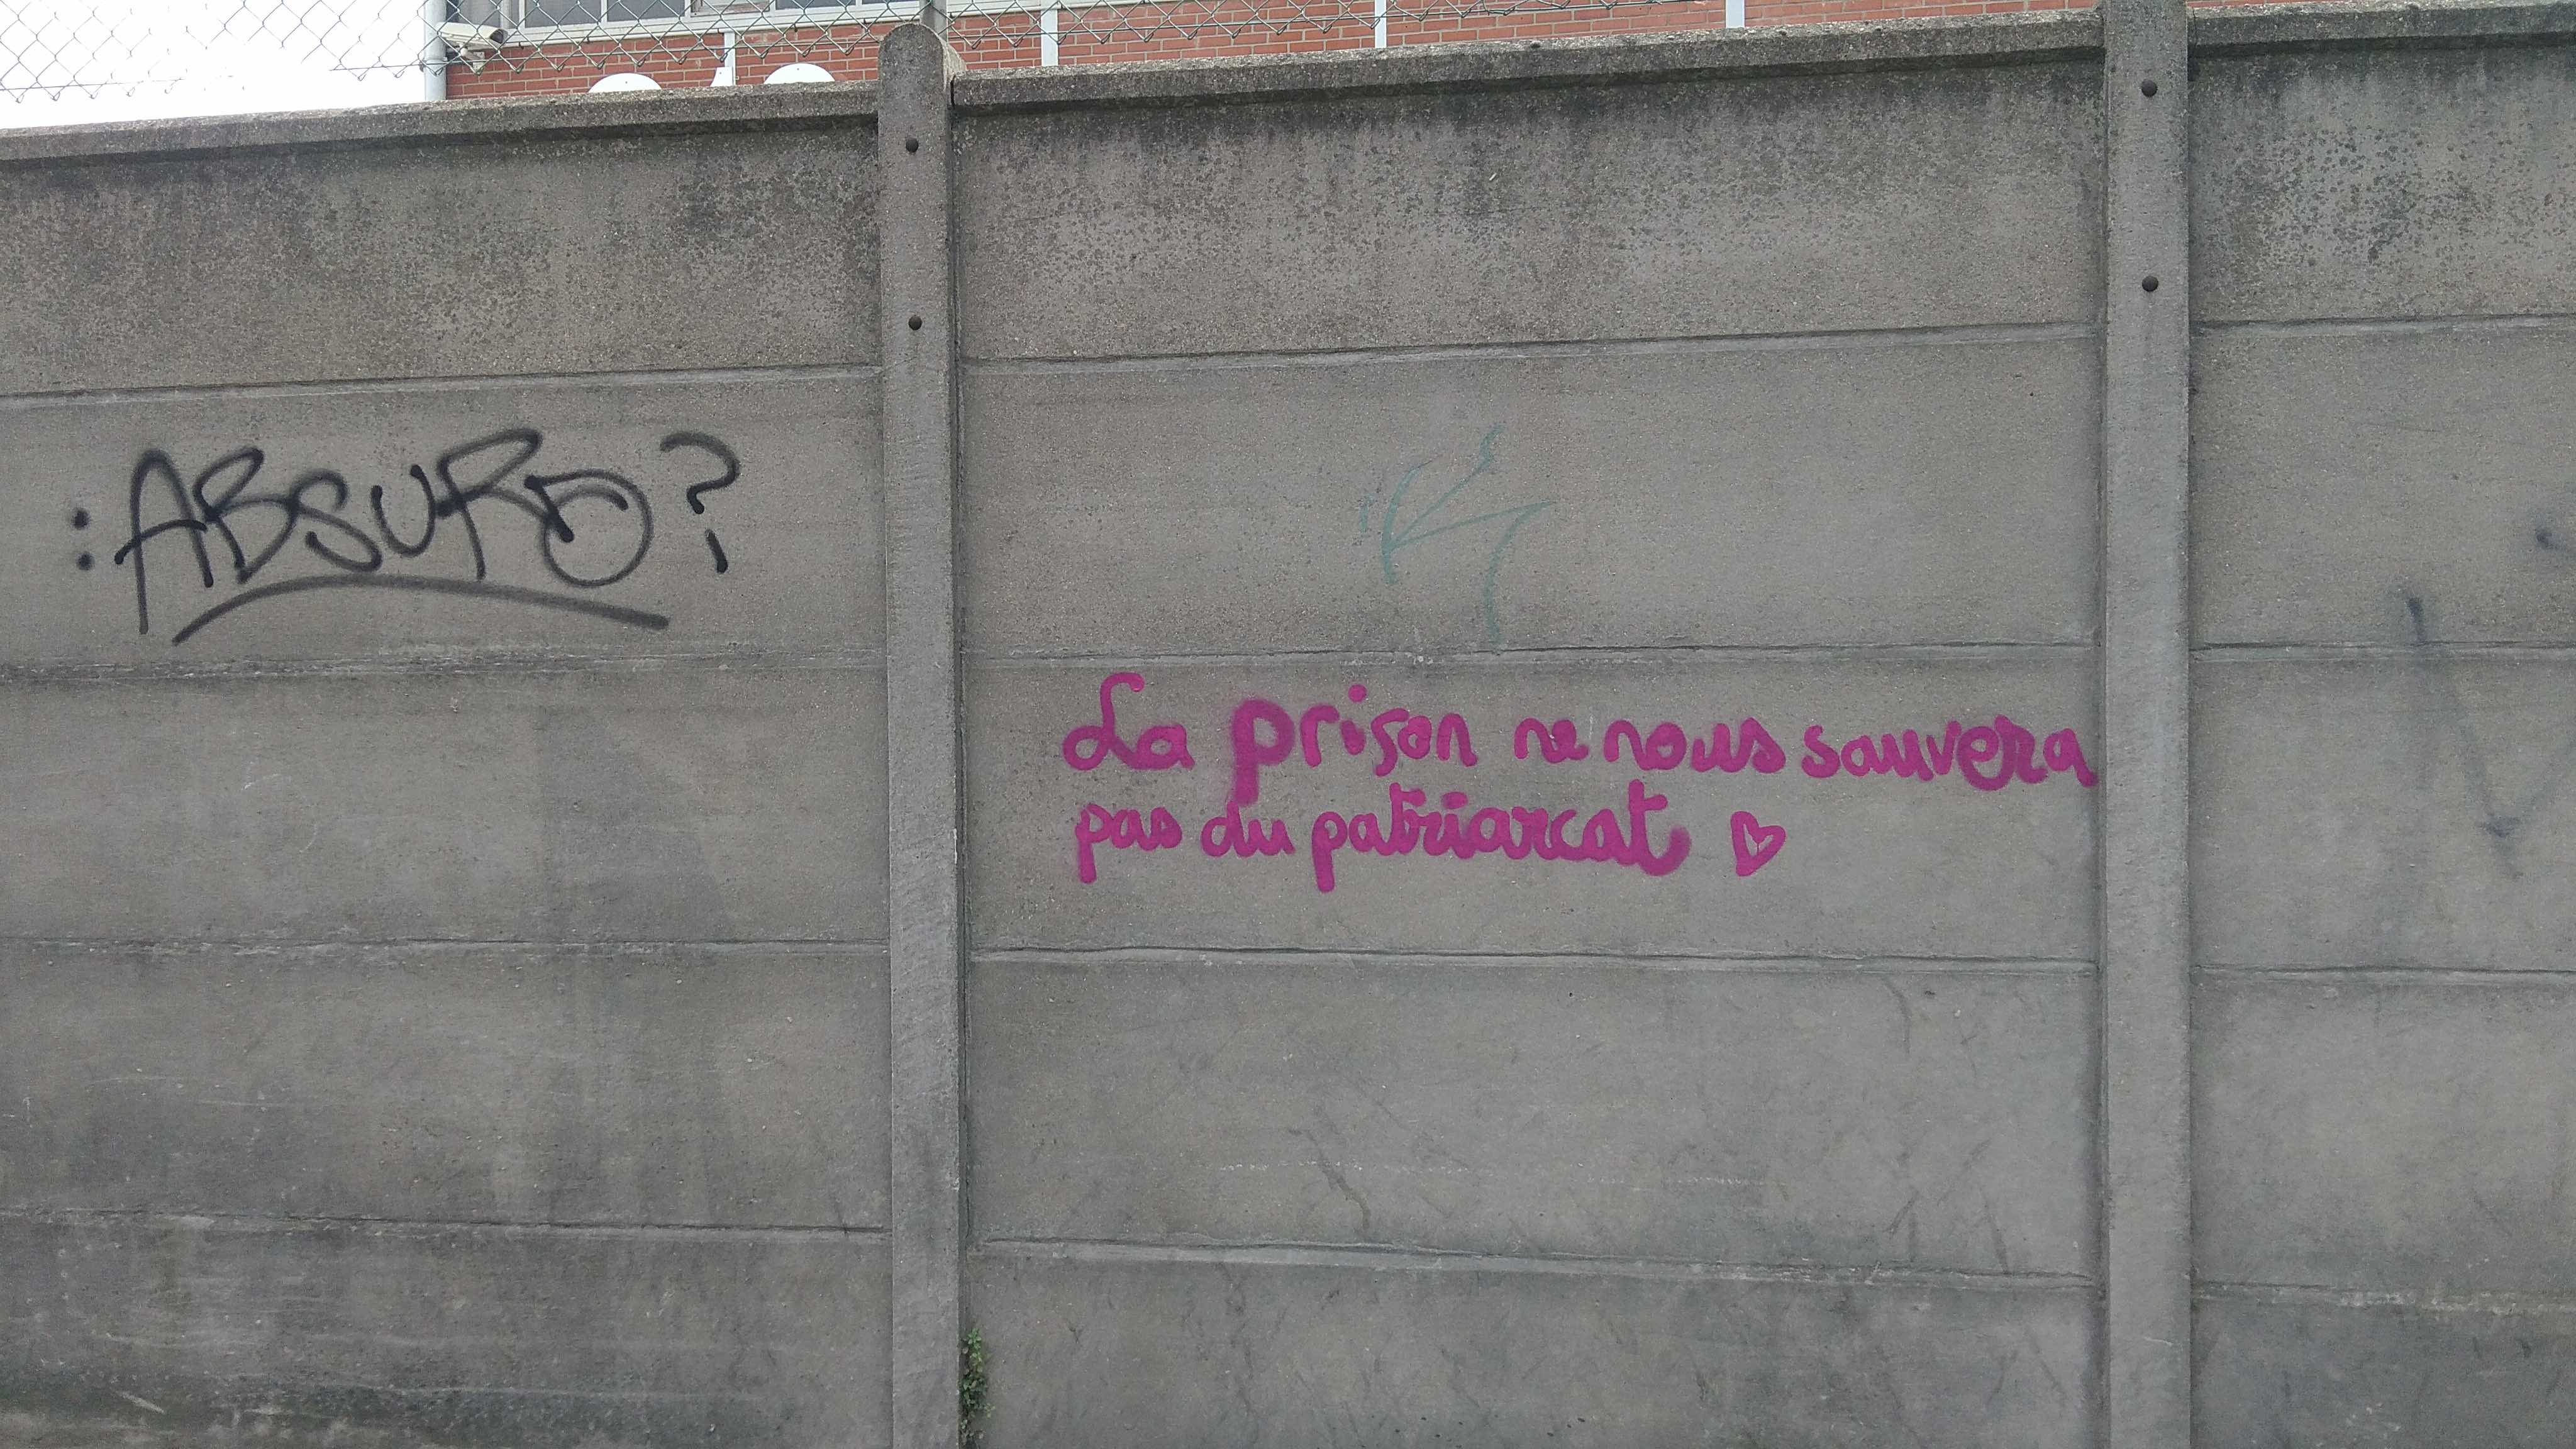 :ABSURD?
La prison ne nous sauvera
pas du patriarcat ♡